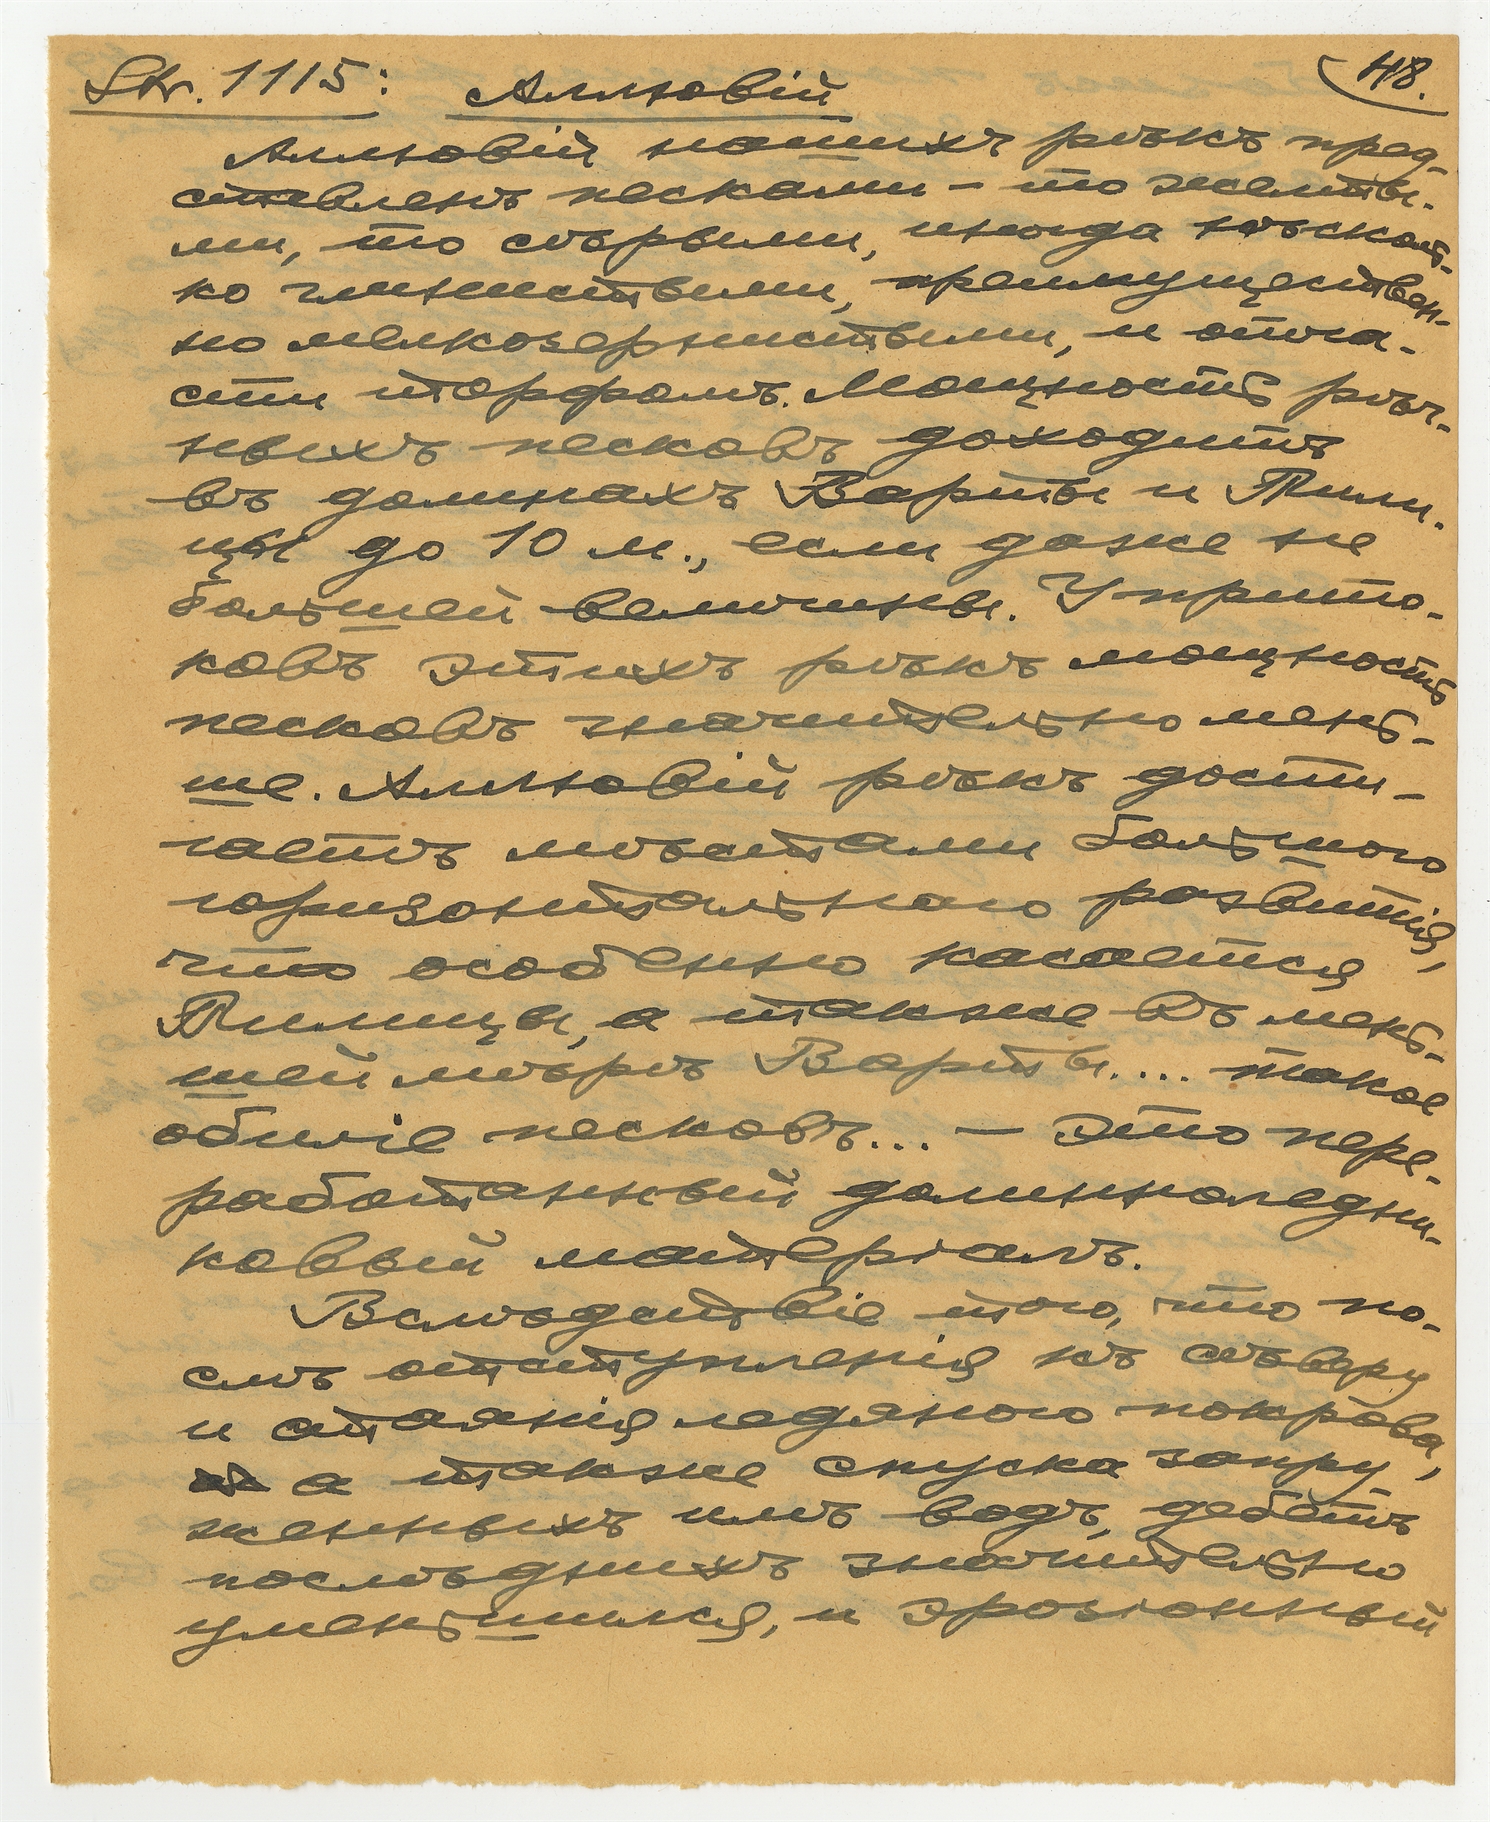 Str. 1115: Аллювiй 48.
Аллювiй нашихъ рѣкъ пред-
ставленъ песками – то желты-
ми, то сѣрыми, иногда нѣсколь-
ко глинистыми, преимуществен-
но мелкозернистыми, и отча-
сти торфомъ. Мощность рѣч-
ныхъ песковъ доходитъ
въ долинахъ Варты и Пили-
цы до 10 м., если даже не
большей величины. У прито-
ковъ этихъ рѣкъ мощность
песковъ значительно мень-
ше. Аллювiй рѣкъ дости-
гаетъ мѣстами большого
горизонтальнаго развитiя,
что особенно касается
Пилицы, а также въ мень-
шей мѣрѣ Варты.... такое
обилiе песковъ... – это пере-
работанный долинноледни-
ковый матерiалъ.
Вслѣдствiе того, что по-
слѣ отступленiя къ сѣверу
и стаянiя ледяного покрова,
а также спуска запру-
женныхъ имъ водъ, дебетъ
послѣднихъ значительно
уменьшился, и эрозiонный